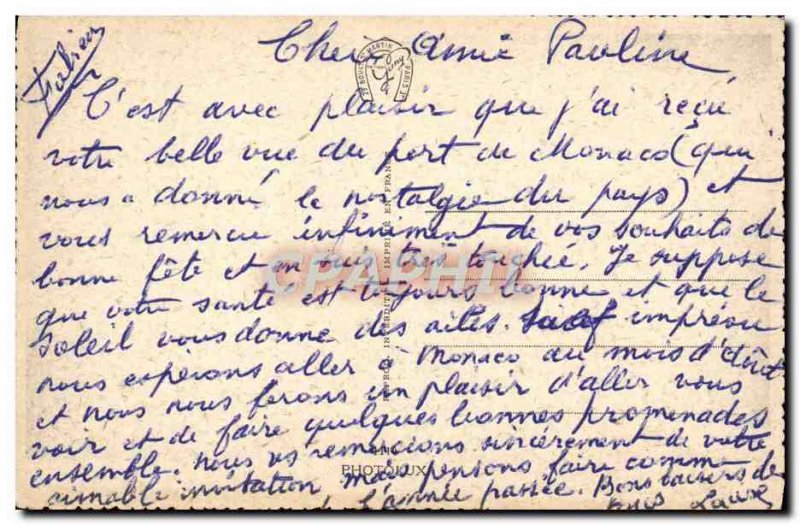 Chère Amie Pauline
Fabien
C'est avec plaisir que j'ai reçu
votre belle vue du port de Monaco (qui
nous a donné la nostalgie du pays) et
vous remercie infiniment de vos souhaits de
bonne fête et en suis très touchée. Je suppose
que votre santé est toujours bonne et que le
soleil vous donne des ailes. Sauf imprévu
nous espérons aller à Monaco au mois d'Août
et nous nous ferons un plaisir d'aller vous
voir et de faire quelques bonnes promenades
ensemble. Nous vs remercions sincèrement de votre
aimable invitation mais pensons faire comme
l'année passée. Bons baisers de
PARIS
IMPRIMÉ EN FRANCE
INTERDITE
PHOTOLUX
CPARHIL